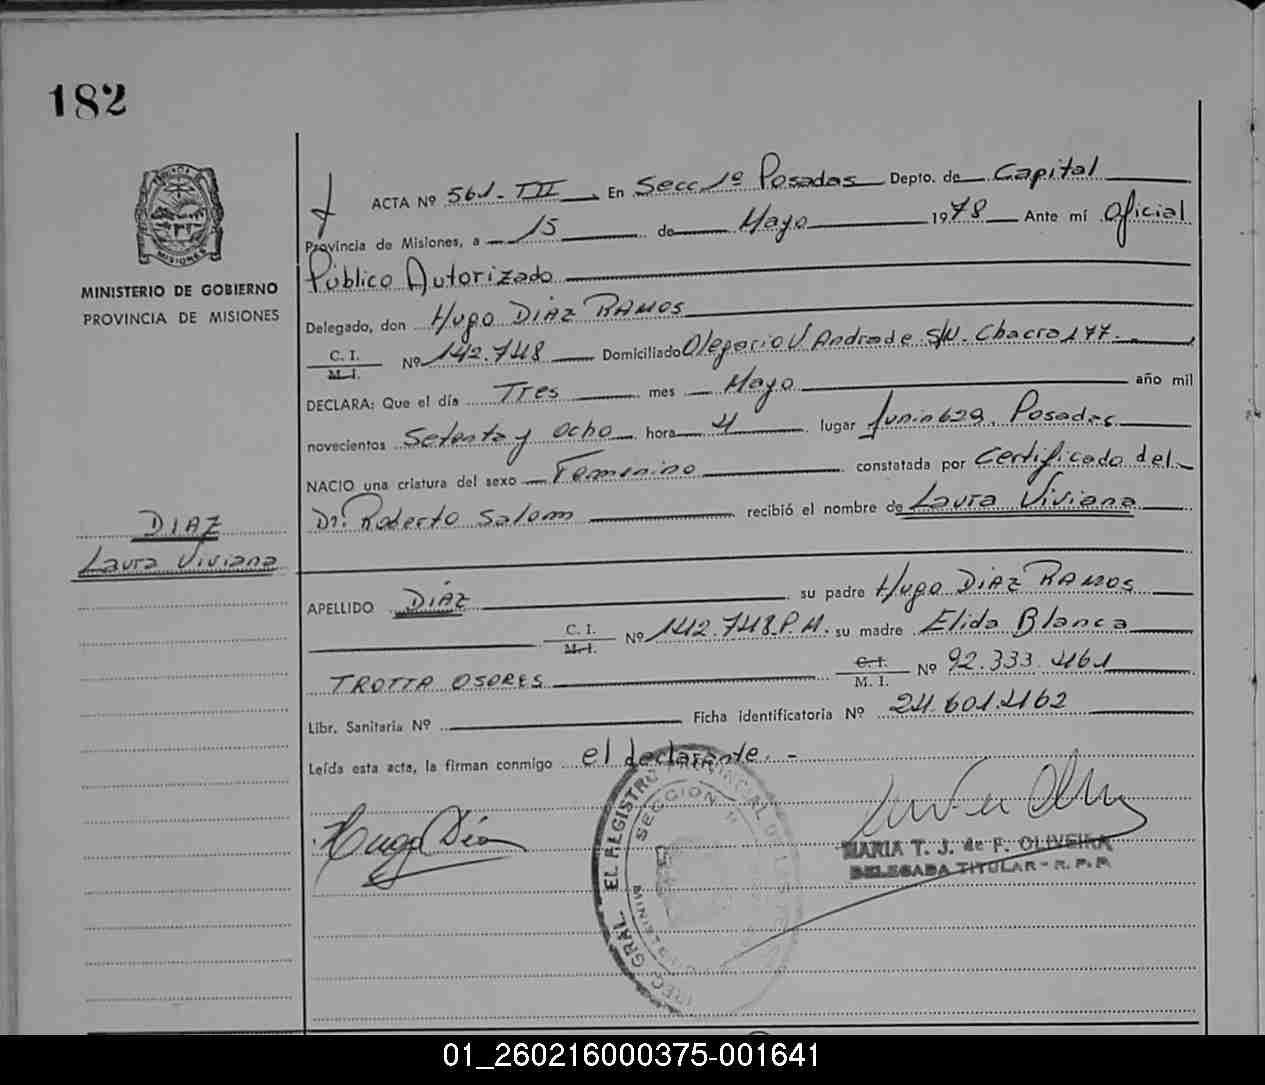 182
MISIONES
MINISTERIO DE GOBIERNO
PROVINCIA DE MISIONES
DIAZ
Laura Viviana
ACTA Nº 561-III En Secc 1º Posadas Depto. de Capital
Provincia de Misiones, a 15 de Mayo 1978 Ante mí Oficial
Público Autorizado
Delegado, don Hugo DIAZ RAMOS
C. I.
M. I. Nº 142.748 Domiciliado Olegario V Andrade S/N. Chacra 177.
DECLARA: Que el día Tres mes Mayo año mil
novecientos Setenta y Ocho hora 4 lugar Junin 629. Posadas
NACIO una criatura del sexo Femenino constatada por Certificado del
Dr. Roberto Salom recibió el nombre de Laura Viviana
APELLIDO DIAZ su padre Hugo DIAZ RAMOS
C. I.
M. I. Nº 142.748 P.M. su madre Elida Blanca
TROTTA OSORES C. I.
M. I. Nº 92.333.461
Libr. Sanitaria Nº Ficha identificatoria Nº 24.601.462
Leída esta acta, la firman conmigo el declarante. -
Hugo Díaz
MARIA T. J. de F. OLIVEIRA
DELEGADA TITULAR - R. P. P.
GRAL. EL REGISTRO PROVINCIAL DE LAS
SECCION 1ª
01_260216000375-001641